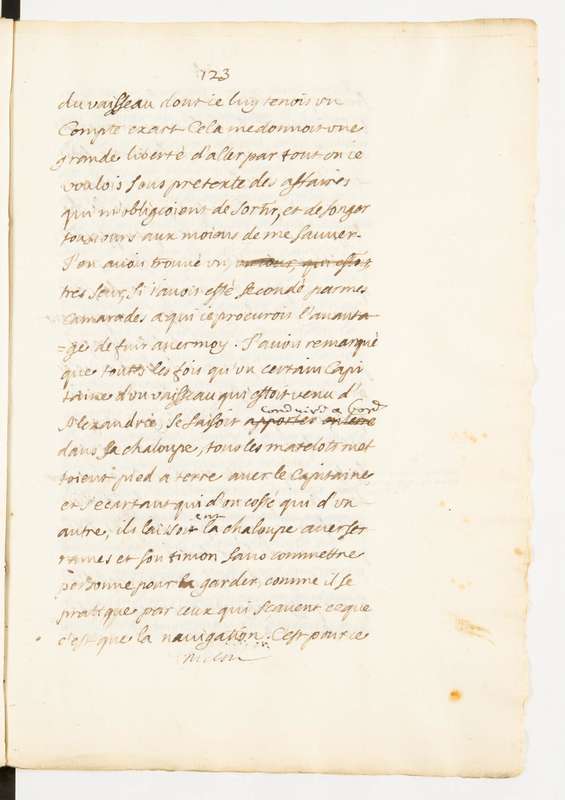 123
du vaisseau dont ie luy tenois vn
Compte exact Cela me donnoit vne
grande liberté d'aller par tout ou ie
voulois sous pretexte des affaires
qui m'obligeoient de sortir, et de songer
tousiours aux moiens de me sauver.
J'en avois trouvé vn, qui estoit
tres seur, si i'avois esté secondé par mes
camarades a qui ie procurois l'avanta
=ge de fuir avec moy. J'avois remarqué
que toutes les fois qu'un certain Capi
taine d'un vaisseau qui estoit venu d'
Alexandrie, se faisoit apporter en terre conduire a bord
dans sa chaloupe, tous les matelots met
toient pied a terre avec le Capitaine,
et s'ecartant qui d'un costé qui d'un
autre, ils laissoient la chaloupe avec ses
rames et son timon sans commettre
personne pour la garder, comme il se
pratique par ceux qui scavent ce que
c'est que la navigation. C'est pour ce